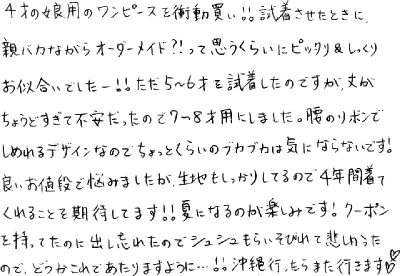 4才の娘用のワンピースを衝動買い!!試着させたときに、
親バカながらオーダーメイド?!って思うくらいにピッタリ&しっくり
お似合いでしたー!!ただ5~6才を試着したのですが、丈が
ちょうどすぎて不安だったので7~8才用にしました。腰のリボンで
しめれるデザインなのでちょっとくらいのブカブカは気にならないです!
良いお値段で悩みましたが、生地もしっかりしてるので4年間着て
くれることを期待してます!!夏になるのが楽しみです!クーポン
を持ってたのに出し忘れたのでシュシュもらいそびれて悲しかった
ので、どうかこれであたりますように…!!沖縄行ったらまた行きます♡